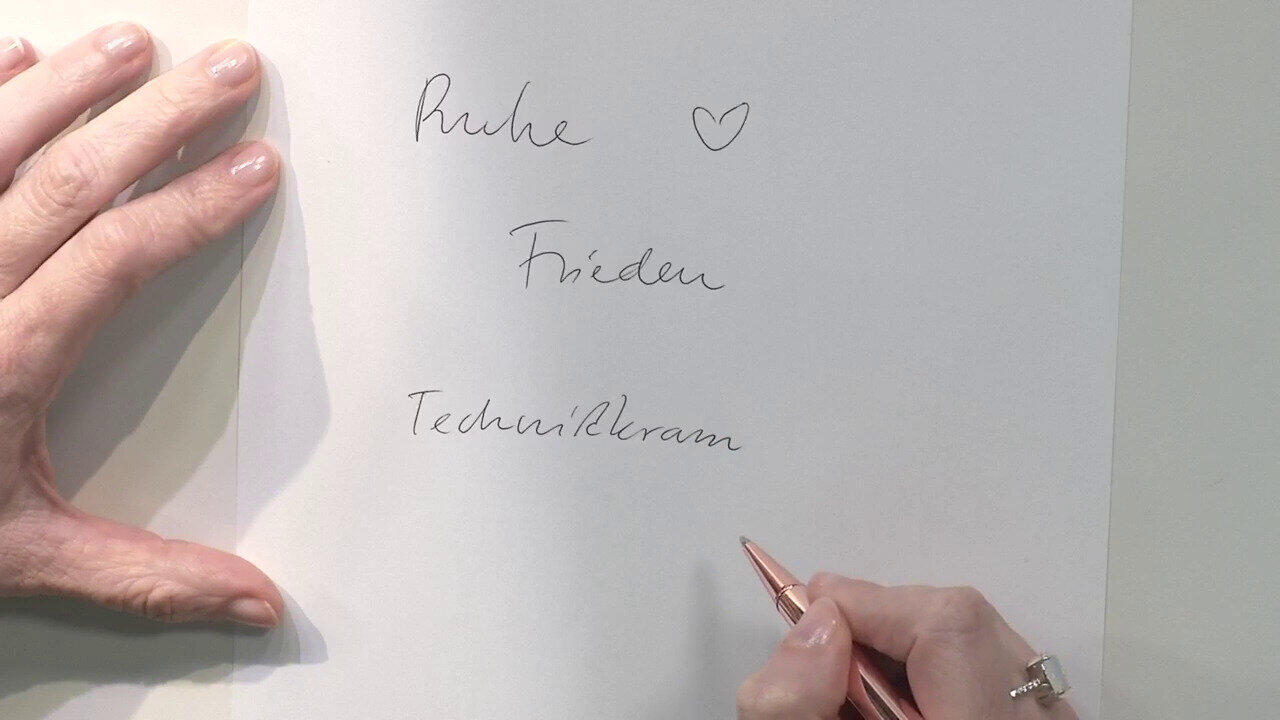 Ruhe ♡
Frieden
Technikkram